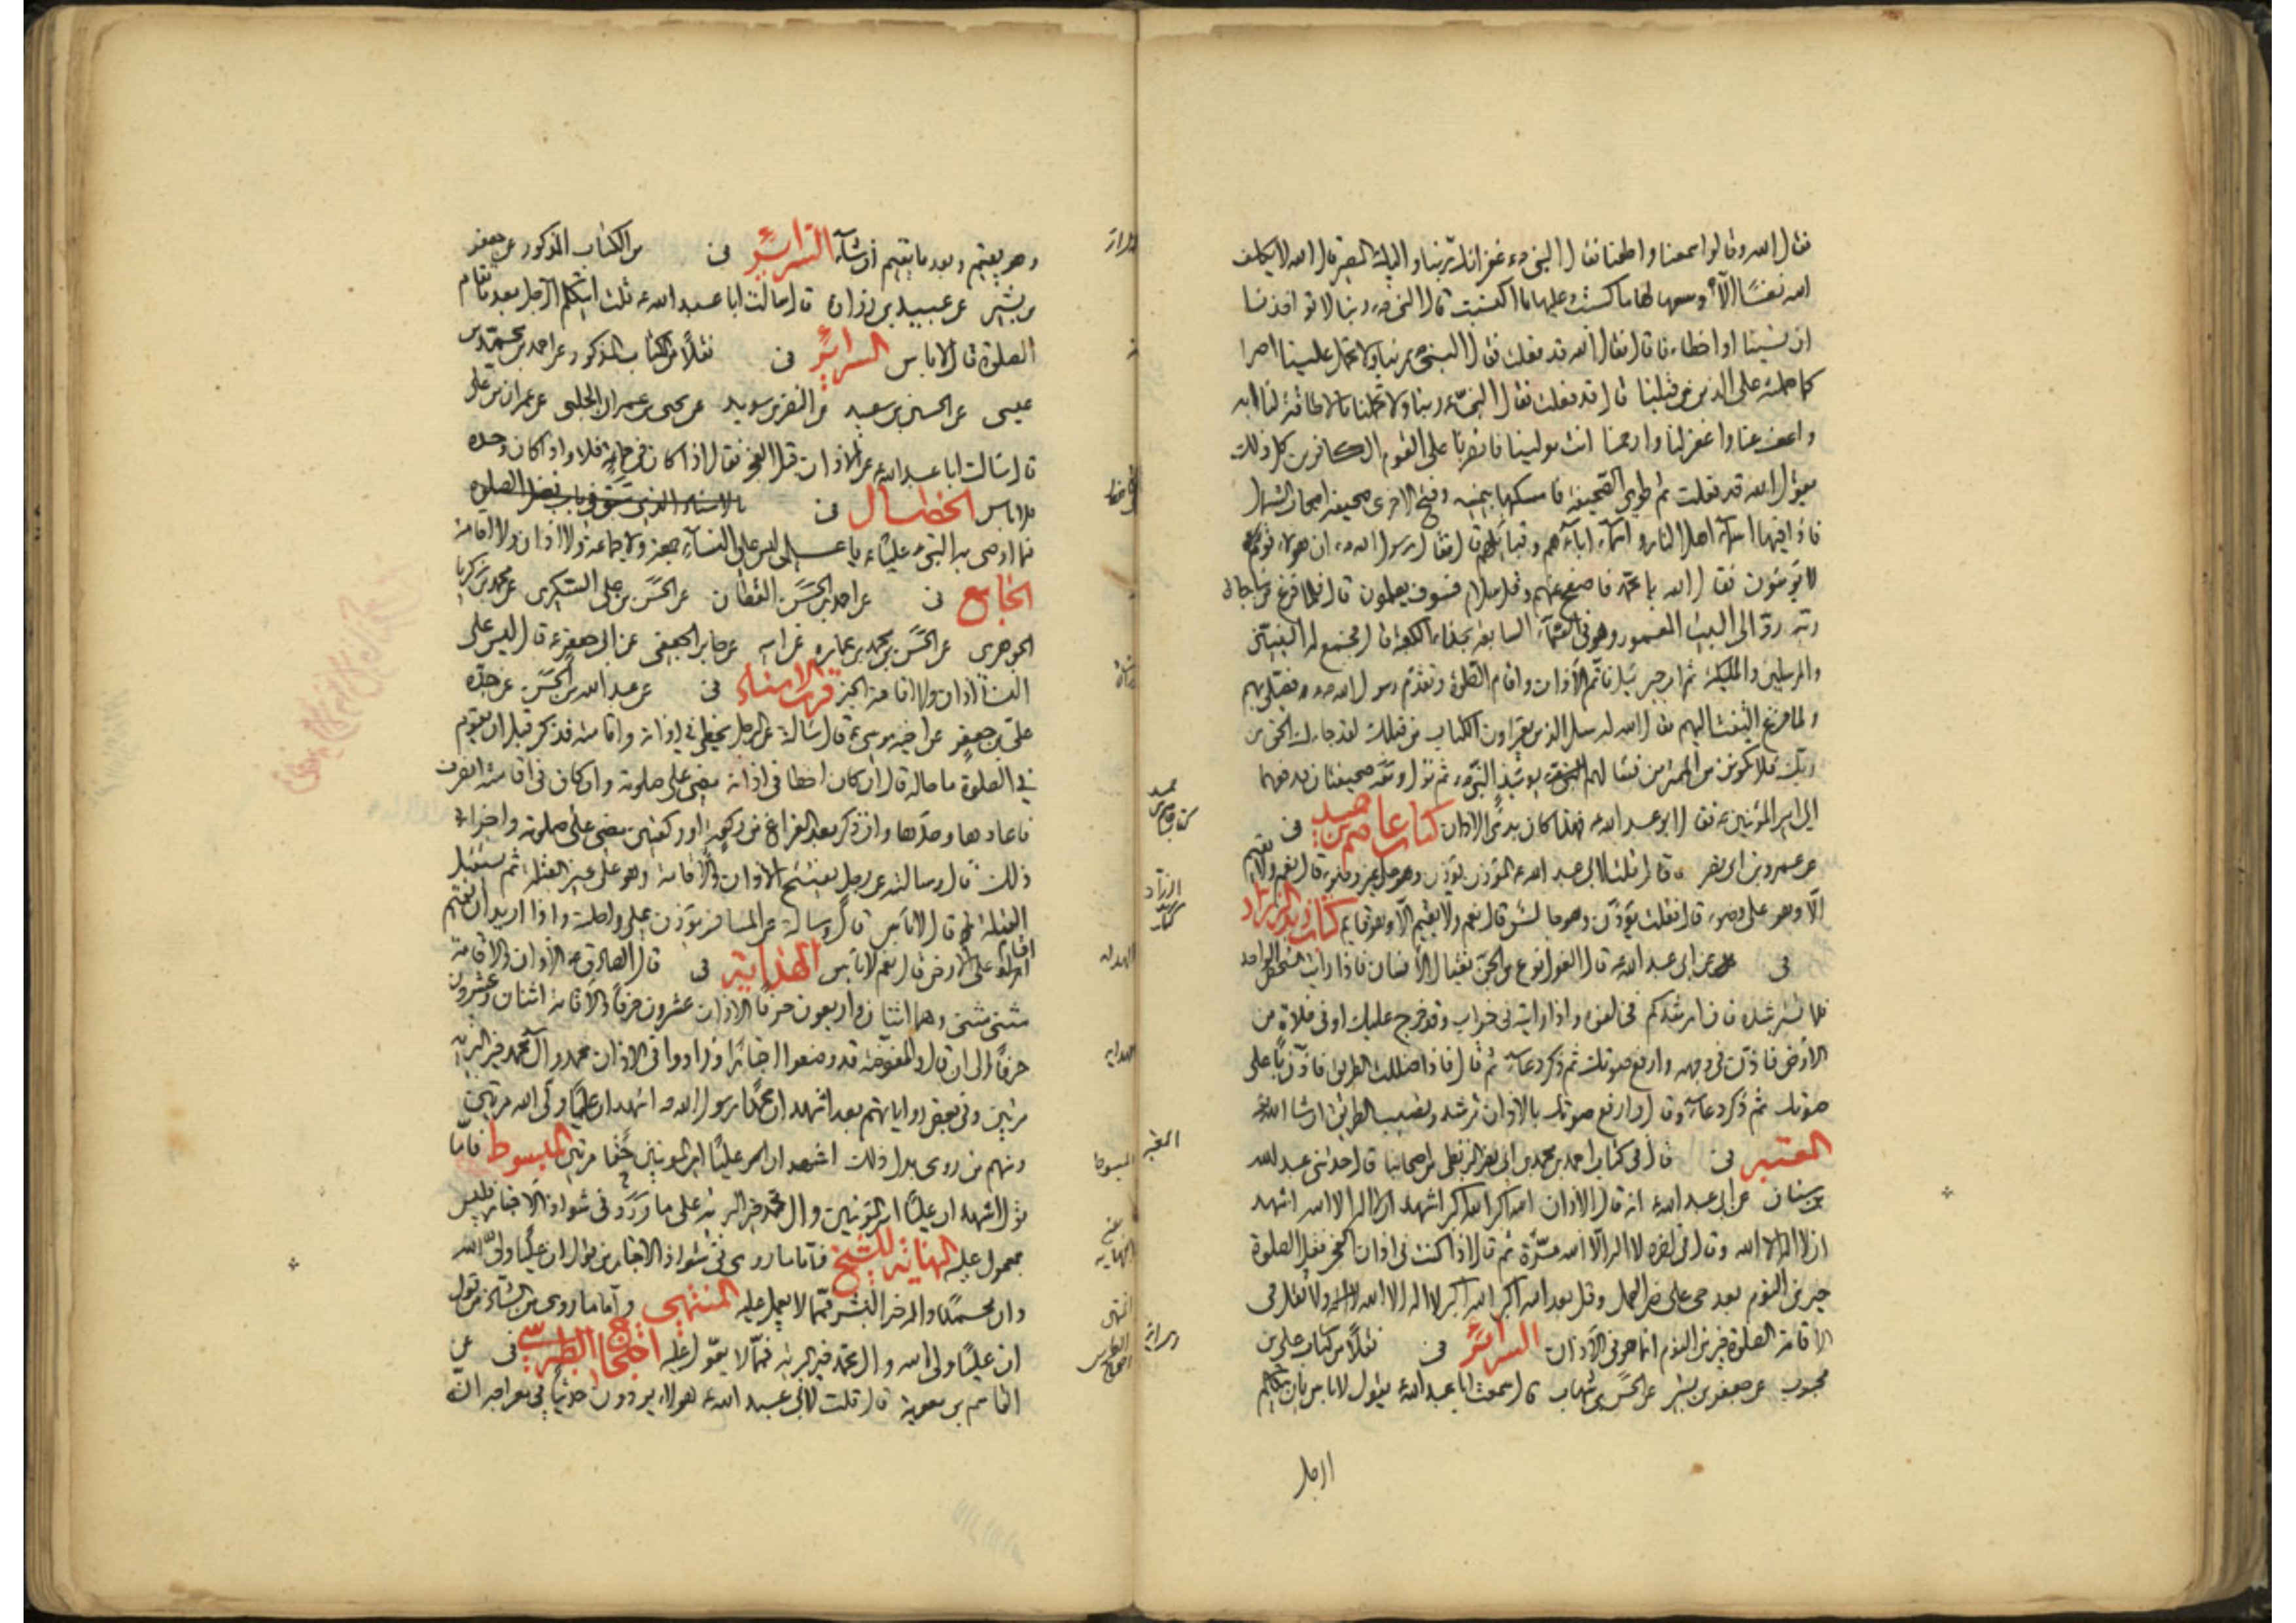 فقال الله وقالوا سمعنا واطعنا فقال النبي ص غفرانك ربنا واليك المصير قال الله لا يكلف
الله نفسا الا وسعها لها ما كسبت وعليها ما اكتسبت قال النبي ص ربنا لا تؤاخذنا
ان نسينا او اخطانا قال فقال الله قد فعلت فقال النبي ص ربنا ولا تحمل علينا اصرا
كما حملته على الذين من قبلنا قال قد فعلت فقال النبي ص ربنا ولا تحملنا ما لا طاقة لنا به
واعف عنا واغفر لنا وارحمنا انت مولينا فانصرنا على القوم الكافرين كل ذلك
يقول الله قد فعلت ثم طوى الصحيفة فامسكها بيمينه وفتح الاخرى صحيفة اصحاب الشمال
فاذا فيها اسماء اهل النار واسماء آبائهم وقبائلهم قال فقال رسول الله ص ان هولاء قوم
لا يؤمنون فقال الله يا محمد فاصفح عنهم وقل سلام فسوف يعلمون قال فلما فرغ من مناجاة
ربه رد الى البيت المعمور وهو في السماء السابعة بحذاء الكعبة قال فجمع له النبيين
والمرسلين والملئكة ثم امر جبرئيل فاتم الاذان واقام الصلوة وتقدم رسول الله ص فصلى بهم
ولما فرغ التفت اليهم فقال الله له سل الذين يقرؤن الكتاب من قبلك لقد جاءك الحق من
ربك فلا تكونن من الممترين فسألهم يومئذ النبي ص ثم نزل ومعه صحيفتان فدفعهما
الى امير المؤمنين ع فقال ابو عبد الله ع فهذا كان بدئ الاذان كتاب عاصم بن حميد في
عن عمرو بن ابي نصر قال قلت لابي عبد الله ع المؤذن يؤذن وهو على غير وضوء قال نعم ولا يقيم
الا وهو على وضوء قال فقلت يؤذن وهو جالس قال نعم ولا يقيم الا وهو قايم كتاب زيد الزراد
في عن ابي عبد الله ع قال الغول نوع من الجن يغتال الانسان فاذا رايت الشخص الواحد
فلا تسترشده فان ارشدكم فخالفوه واذا رايته في خراب وقد خرج عليك او في فلاة من
الارض فاذن في وجهه وارفع صوتك ثم ذكر دعاء ثم قال فاذا ضللت الطريق فاذن باعلى
صوتك ثم ذكر دعاء وقال وارفع صوتك بالاذان ترشد وتصيب الطريق ان شاء الله
المعتبر في قال في كتاب احمد بن محمد بن ابي نصر البزنطي من اصحابنا قال حدثني عبد الله
بن سنان عن ابي عبد الله ع انه قال الاذان الله اكبر الله اكبر اشهد ان لا اله الا الله اشهد
ان لا اله الا الله وقال في اخره لا اله الا الله مرة ثم قال اذا كنت في اذان الفجر فقل الصلوة
خير من النوم بعد حي على خير العمل وقل بعد الله اكبر الله اكبر لا اله الا الله ولا تقل في
الاقامة الصلوة خير من النوم انما هو في الاذان السرائر في نقلا من كتاب علي بن
محبوب عن جعفر بن بشير عن الحسن بن شهاب قال سمعت ابا عبد الله ع يقول لا باس بان يتكلم
الرجل
وهو يقيم وبعد ما يقيم ان شاء السرائر في من الكتاب المذكور عن جعفر
بن بشير عن عبيد بن زرارة قال سالت ابا عبد الله ع قلت ايتكلم الرجل بعد ما تقام
الصلوة قال لا باس السرائر في نقلا من الكتاب المذكور عن احمد بن محمد بن
عيسى عن الحسين بن سعيد عن النضر بن سويد عن يحيى بن عمران الحلبي عن عمران بن علي
قال سالت ابا عبد الله ع عن الاذان قبل الفجر فقال اذا كان في جماعة فلا واذا كان وحده
فلا باس الخصال في بالاسناد الذي سبق في باب فضل الصلوة
فيما اوصى به النبي ص عليا ع يا علي ليس على النساء جمعة ولا جماعة ولا اذان ولا اقامة
الجامع في عن احمد بن الحسن القطان عن الحسن بن علي السكري عن محمد بن زكريا
الجوهري عن الحسن بن محمد بن عمارة عن ابيه عن جابر الجعفي عن ابي جعفر ع قال ليس على
النساء اذان ولا اقامة الخبر قرب الاسناد في عن عبد الله بن الحسن عن جده
علي بن جعفر عن اخيه موسى ع قال سالته عن الرجل يخطئ في اذانه واقامته فذكر قبل ان يقوم
في الصلوة ما حاله قال ان كان اخطا في اذانه مضى على صلوته وان كان في اقامته انصرف
فاعادها وحدها وان ذكر بعد الفراغ من ركعة او ركعتين مضى على صلوته واجزاه
ذلك قال وسالته عن رجل يفتتح الاذان والاقامة وهو على غير القبلة ثم يستقبل
القبلة قال لا باس قال وسالته عن المسافر يؤذن على راحلته واذا اراد ان يقيم
اقام على الارض قال نعم لا باس الهداية في قال الصادق ع الاذان والاقامة
مثنى مثنى وهما اثنتان واربعون حرفا الاذان عشرون حرفا والاقامة اثنان وعشرون
حرفا الى ان قال والمفوضة قد وضعوا اخبارا وزادوا في الاذان محمد وآل محمد خير البرية
مرتين وفي بعض رواياتهم بعد اشهد ان محمدا رسول الله ص اشهد ان عليا ولي الله مرتين
ومنهم من روى بدل ذلك اشهد ان عليا امير المؤمنين حقا مرتين المبسوط فاما
قول اشهد ان عليا امير المؤمنين وآل محمد خير البرية على ما ورد في شواذ الاخبار فليس
بمعمول عليه النهاية للشيخ فاما ما روى في شواذ الاخبار من قول ان عليا ولي الله
وان محمدا وآله خير البشر فمما لا يعمل عليه المنتهى واما ما روى من الشاذ من قول
ان عليا ولي الله وآل محمد خير البرية فمما لا يعول عليه احتجاج الطبرسي في عن
القاسم بن معوية قال قلت لابي عبد الله ع هولاء يروون حديثا في معراجه انه